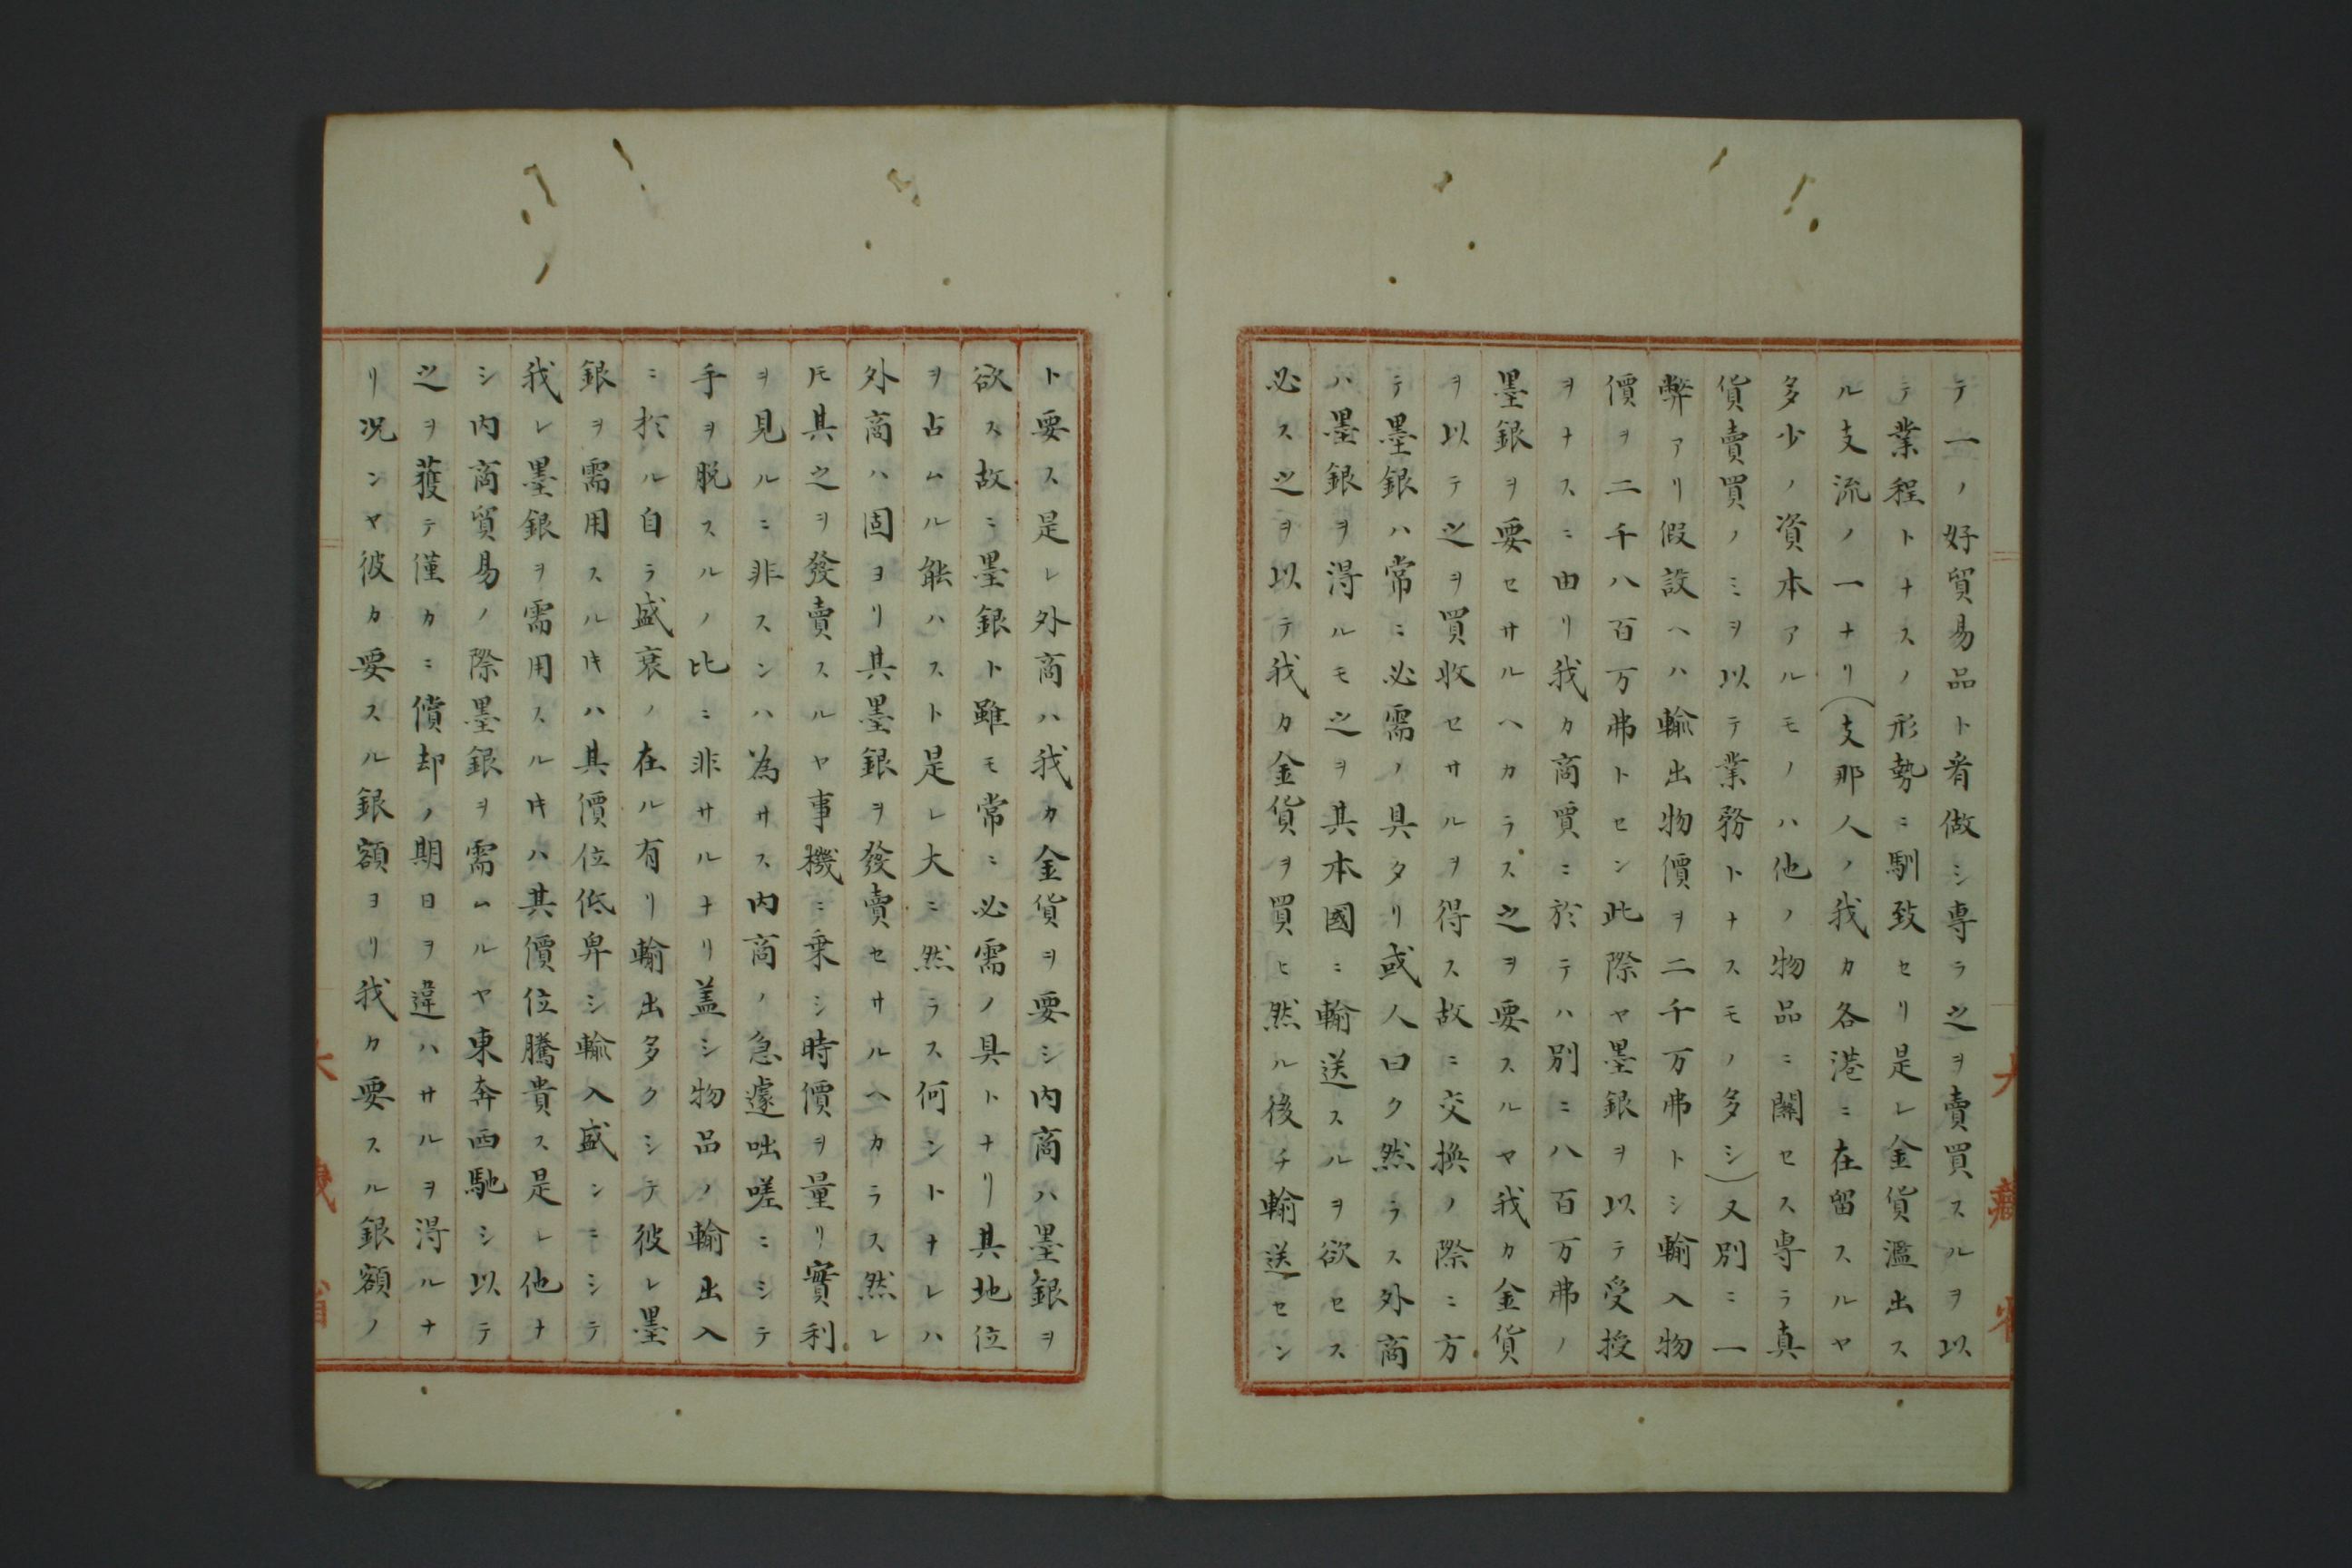 テ一ノ好貿易品ト看做シ専ラ之ヲ賣買スルヲ以
テ業程トナスノ形勢ニ馴致セリ是レ金貨濫出ス
ル支流ノ一ナリ（支那人ノ我カ各港ニ在留スルヤ
多少ノ資本アルモノハ他ノ物品ニ關セス専ラ真
貨賣買ノミヲ以テ業務トナスモノ多シ）又別ニ一
弊アリ假設ヘハ輸出物價ヲ二千万弗トシ輸入物
價ヲ二千八百万弗トセン此際ヤ墨銀ヲ以テ受授
ヲナスニ由リ我カ商買ニ於テハ別ニ八百万弗ノ
墨銀ヲ要セサルヘカラス之ヲ要スルヤ我カ金貨
ヲ以テ之ヲ買收セサルヲ得ス故ニ交換ノ際ニ方
テ墨銀ハ常ニ必需ノ具タリ或人曰ク然ラス外商
ハ墨銀ヲ得ルモ之ヲ其本國ニ輸送スルヲ欲セス
必ス之ヲ以テ我カ金貨ヲ買ヒ然ル後チ輸送セン
ト要ス是レ外商ハ我カ金貨ヲ要シ内商ハ墨銀ヲ
欲ス故ニ墨銀ト雖モ常ニ必需ノ具トナリ其地位
ヲ占ムル能ハスト是レ大ニ然ラス何ントナレハ
外商ハ固ヨリ其墨銀ヲ發賣セサルヘカラス然レ
𪜈其之ヲ發賣スルヤ事機ニ乗シ時價ヲ量リ實利
ヲ見ルニ非スンハ為サス内商ノ急遽咄嗟ニシテ
手ヲ脱スルノ比ニ非サルナリ盖シ物品ノ輸出入
ニ於ル自ラ盛衰ノ在ル有リ輸出多クシテ彼レ墨
銀ヲ需用スル𪜈ハ其價位低卑シ輸入盛ンニシテ
我レ墨銀ヲ需用スル𪜈ハ其價位騰貴ス是レ他ナ
シ内商貿易ノ際墨銀ヲ需ムルヤ東奔西馳シ以テ
之ヲ獲テ僅カニ償却ノ期日ヲ違ハサルヲ得ルナ
リ况ンヤ彼カ要スル銀額ヨリ我カ要スル銀額ノ